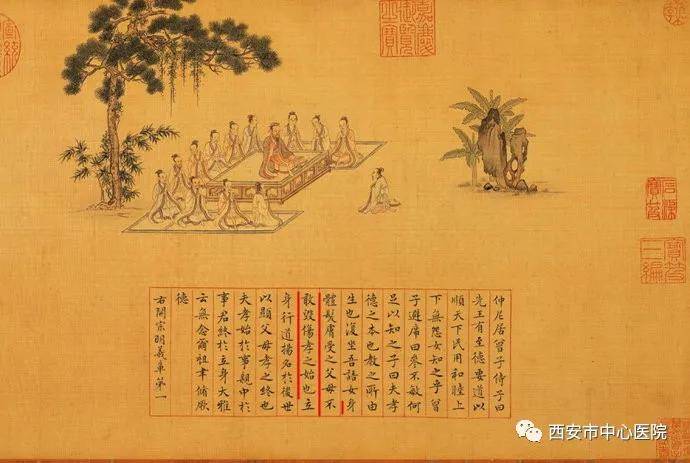 嘉慶
御覽
之寶
石渠
寶笈
寶笈
三編
仲尼居曾子侍子曰
先王有至德要道以
順天下民用和睦上
下無怨女知之乎曾
子避席曰參不敏何
足以知之子曰夫孝
德之本也教之所由
生也復坐吾語女身
體髮膚受之父母不
敢毀傷孝之始也立
身行道揚名於後世
以顯父母孝之終也
夫孝始於事親中於
事君終於立身大雅
云無念爾祖聿脩厥
德
右開宗明義章第一
西安市中心医院